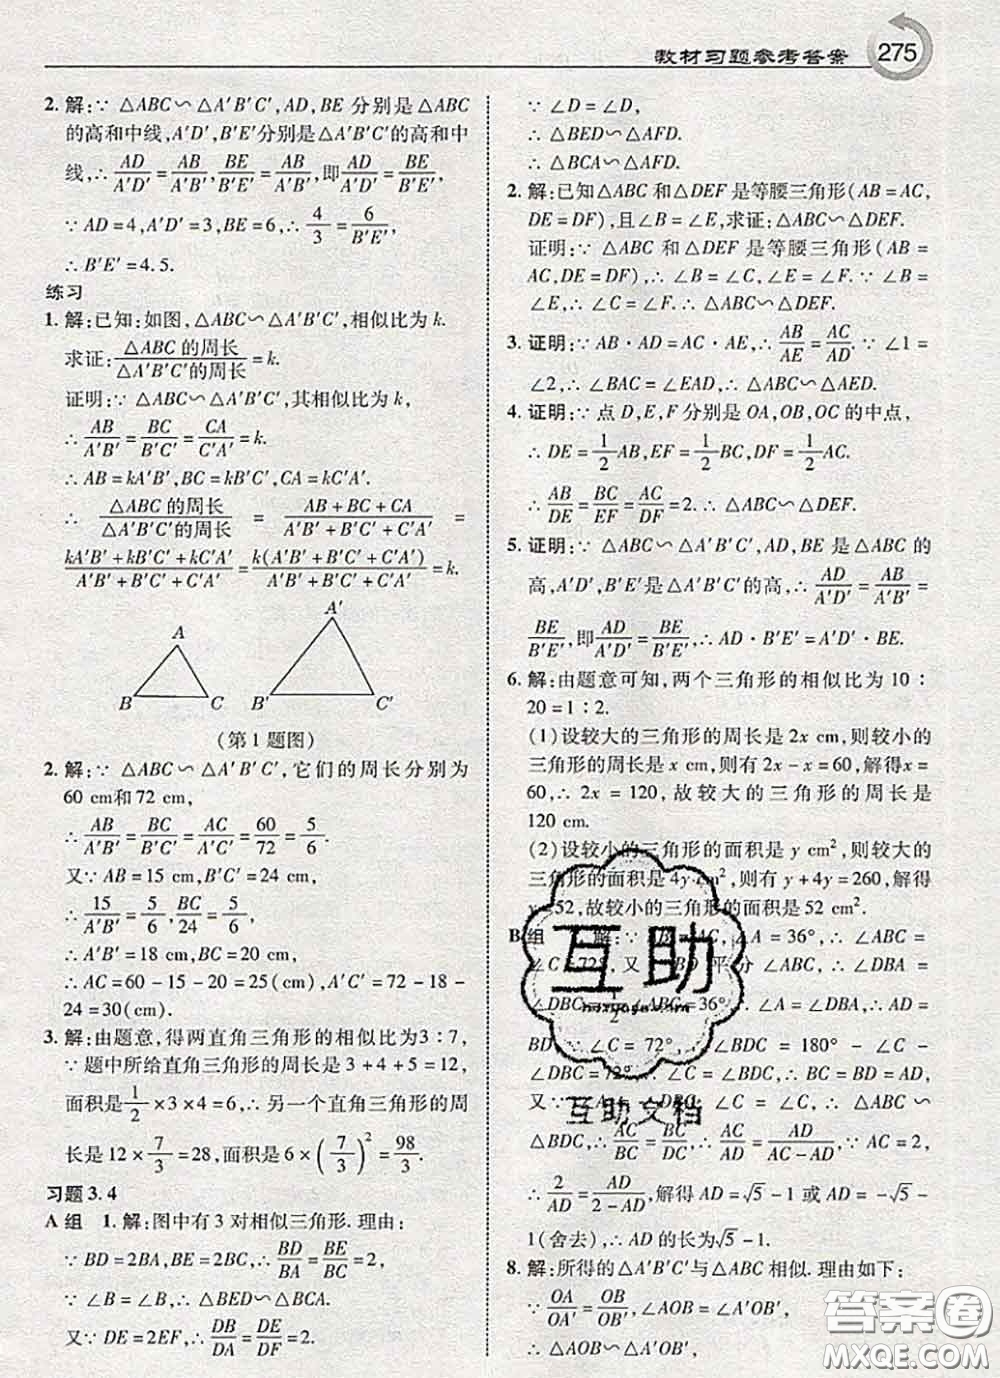 教材习题参考答案
275
2. 解:∵ △ABC∽△A′B′C′,AD,BE 分别是△ABC
的高和中线,A′D′,B′E′分别是△A′B′C′的高和中
线,∴ AD/A′D′ = AB/A′B′ = BE/B′E′,即 AD/A′D′ = BE/B′E′,
∵ AD=4,A′D′=3,BE=6,∴ 4/3 = 6/B′E′,
∴ B′E′=4.5.
练习
1. 解:已知:如图,△ABC∽△A′B′C′,相似比为 k.
求证: △ABC 的周长/△A′B′C′的周长 = k.
证明:∵ △ABC∽△A′B′C′,其相似比为 k,
∴ AB/A′B′ = BC/B′C′ = CA/C′A′ = k.
∴ AB=kA′B′,BC=kB′C′,CA=kC′A′.
∴ △ABC 的周长/△A′B′C′的周长 = (AB+BC+CA)/(A′B′+B′C′+C′A′) =
(kA′B′+kB′C′+kC′A′)/(A′B′+B′C′+C′A′) = k(A′B′+B′C′+C′A′)/(A′B′+B′C′+C′A′) = k.
A
B
C
A′
B′
C′
(第 1 题图)
2. 解:∵ △ABC∽△A′B′C′,它们的周长分别为
60 cm和72 cm,
∴ AB/A′B′ = BC/B′C′ = AC/A′C′ = 60/72 = 5/6.
又∵ AB=15 cm,B′C′=24 cm,
∴ 15/A′B′ = 5/6, BC/24 = 5/6.
∴ A′B′=18 cm,BC=20 cm.
∴ AC=60-15-20=25(cm),A′C′=72-18-
24=30(cm).
3. 解:由题意,得两直角三角形的相似比为3∶7,
∵ 题中所给直角三角形的周长是 3+4+5=12,
面积是 1/2 ×3×4=6,∴ 另一个直角三角形的周
长是 12× 7/3 =28,面积是 6×(7/3)² = 98/3.
习题 3.4
A 组 1. 解:图中有 3 对相似三角形.理由:
∵ BD=2BA,BE=2BC,∴ BD/BA = BE/BC = 2,
∵ ∠B=∠B,∴ △EBD∽△BCA.
又∵ DE=2EF,∴ DB/DA = DE/DF = 2.
∵ ∠D=∠D,
∴ △BED∽△AFD.
∴ △BCA∽△AFD.
2. 解:已知△ABC 和△DEF 是等腰三角形(AB=AC,
DE=DF),且∠B=∠E,求证:△ABC∽△DEF.
证明:∵ △ABC 和△DEF 是等腰三角形(AB=
AC,DE=DF),∴ ∠B=∠C,∠E=∠F.∵ ∠B=
∠E,∴ ∠C=∠F.∴ △ABC∽△DEF.
3. 证明:∵ AB·AD=AC·AE,∴ AB/AE = AC/AD.∵ ∠1=
∠2,∴ ∠BAC=∠EAD.∴ △ABC∽△AED.
4. 证明:∵ 点 D,E,F 分别是 OA,OB,OC 的中点,
∴ DE= 1/2 AB,EF= 1/2 BC,DF= 1/2 AC.
∴ AB/DE = BC/EF = AC/DF = 2.∴ △ABC∽△DEF.
5. 证明:∵ △ABC∽△A′B′C′,AD,BE 是△ABC 的
高,A′D′,B′E′是△A′B′C′的高,∴ AD/A′D′ = AB/A′B′ =
BE/B′E′,即 AD/A′D′ = BE/B′E′,∴ AD·B′E′=A′D′·BE.
6. 解:由题意可知,两个三角形的相似比为 10∶
20=1∶2.
(1)设较大的三角形的周长是 2x cm,则较小的
三角形的周长是 x cm,则有 2x-x=60,解得x=
60,∴ 2x=120,故较大的三角形的周长是
120 cm.
(2)设较小的三角形的面积是 y cm²,则较大的
三角形的面积是 4y cm²,则有 y+4y=260,解得
y=52,故较小的三角形的面积是 52 cm².
B 组 解:∵ AB=AC,∠A=36°,∴ ∠ABC
=∠C=72°,又∵ BD 平分∠ABC,∴ ∠DBA=
∠DBC= 1/2 ∠ABC=36°=∠A,∴ ∠A=∠DBA,∴ AD=
BD.∵ ∠C=72°,∴ ∠BDC=180°-∠C-
∠DBC=72°,∴ ∠C=∠BDC,∴ BC=BD=AD,
又∵ ∠C=∠C,∴ △ABC∽
△BDC,∴ AC/BC = BC/DC,∴ AC/AD = AD/(AC-AD).∵ AC=2,
∴ 2/AD = AD/(2-AD),解得 AD=√5-1或 AD=-√5-
1(舍去),∴ AD 的长为√5-1.
8. 解:所得的△A′B′C′与△ABC 相似.理由如下:
∵ OA/OA′ = OB/OB′,∠AOB=∠A′OB′,
∴ △AOB∽△A′OB′,
互助
互助文档
答案圈
MXQE.COM